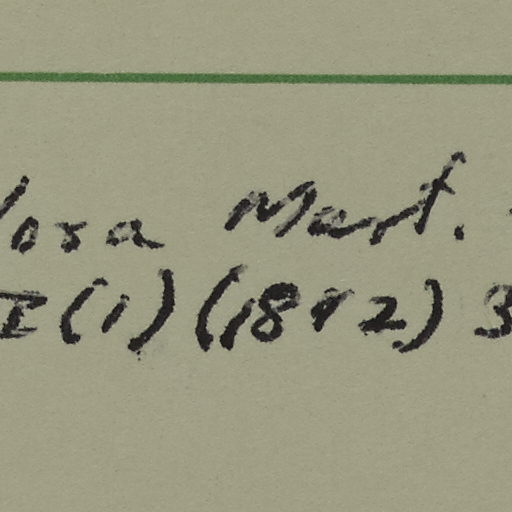 lora Mart.
I(1) (1842) 3